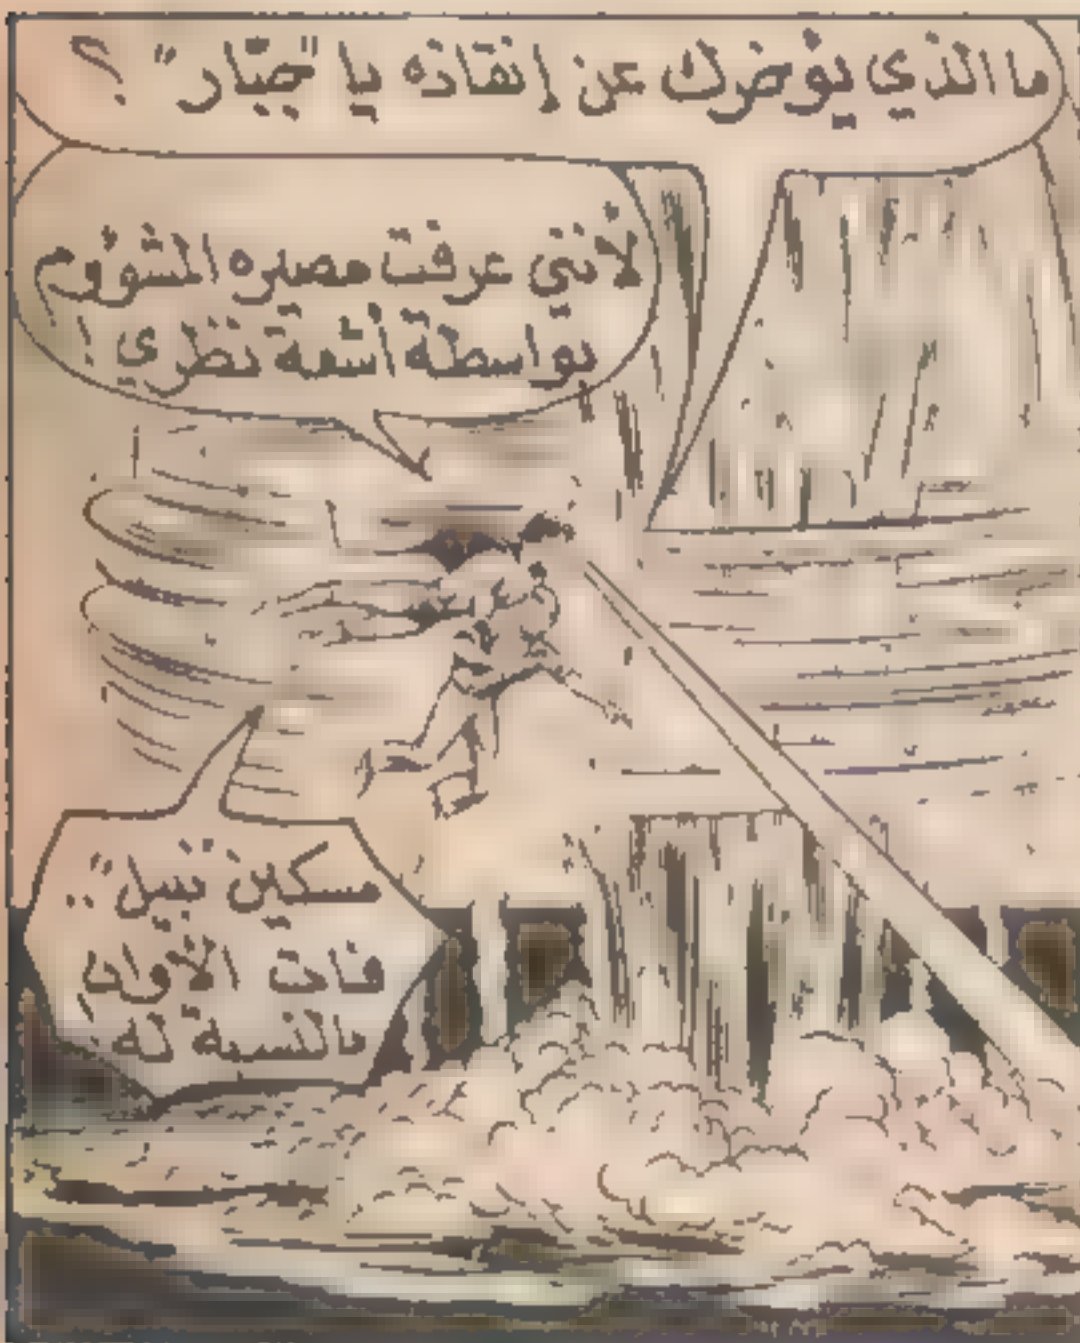 ما الذي يؤخرك عن إنقاذه يا "جبّار" ؟
لأنني عرفت مصيره المشؤوم
بواسطة أشعة نظري !
مسكين "نبيل" ..
فات الأوان
بالنسبة له .